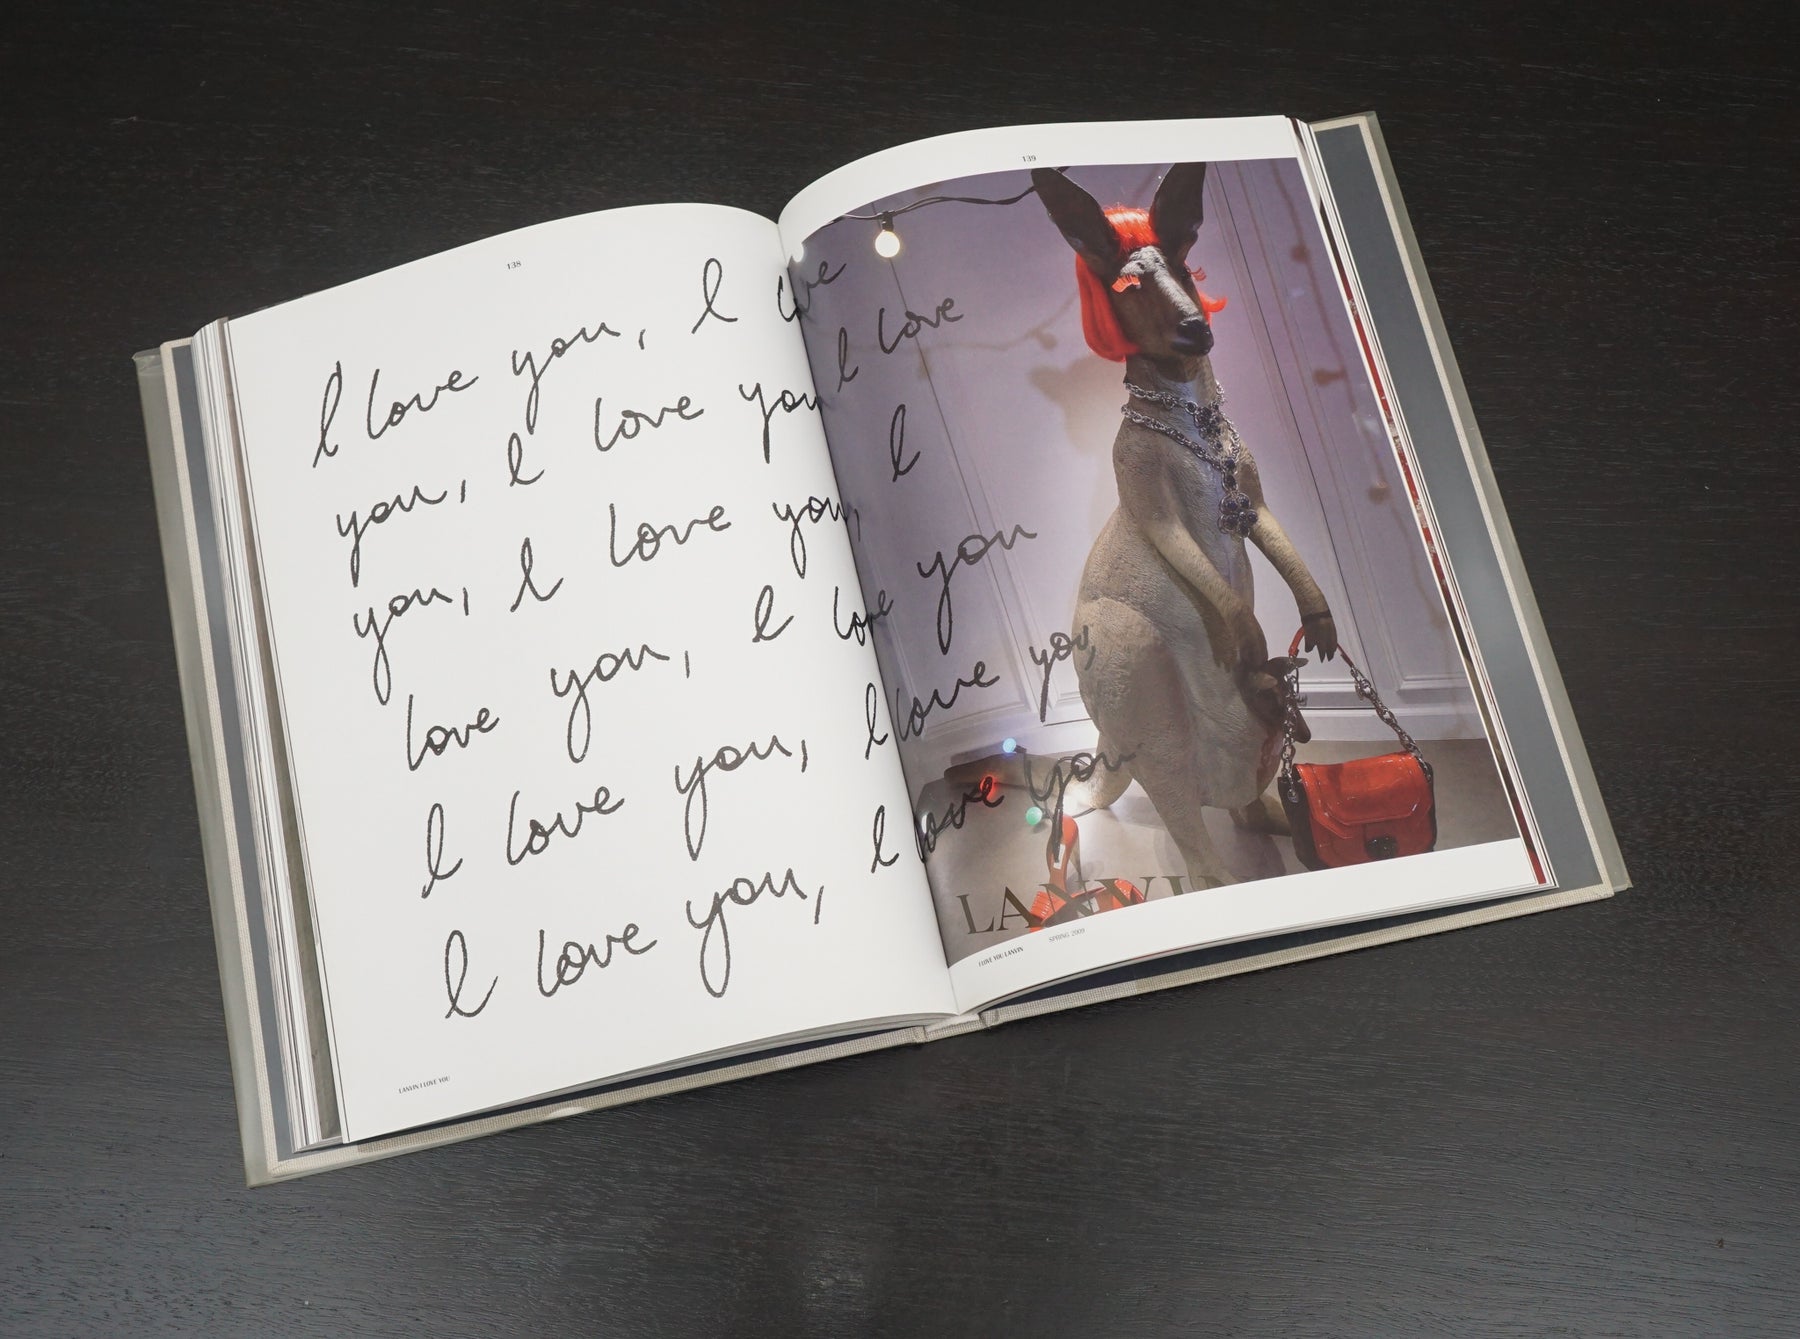 138
139
I love you, I love
you, I love you I love
you, I love you, I
love you, I love you
I love you, I love you,
I love you, I love you
LANVIN
LANVIN I LOVE YOU
I LOVE YOU LANVIN SPRING 2009